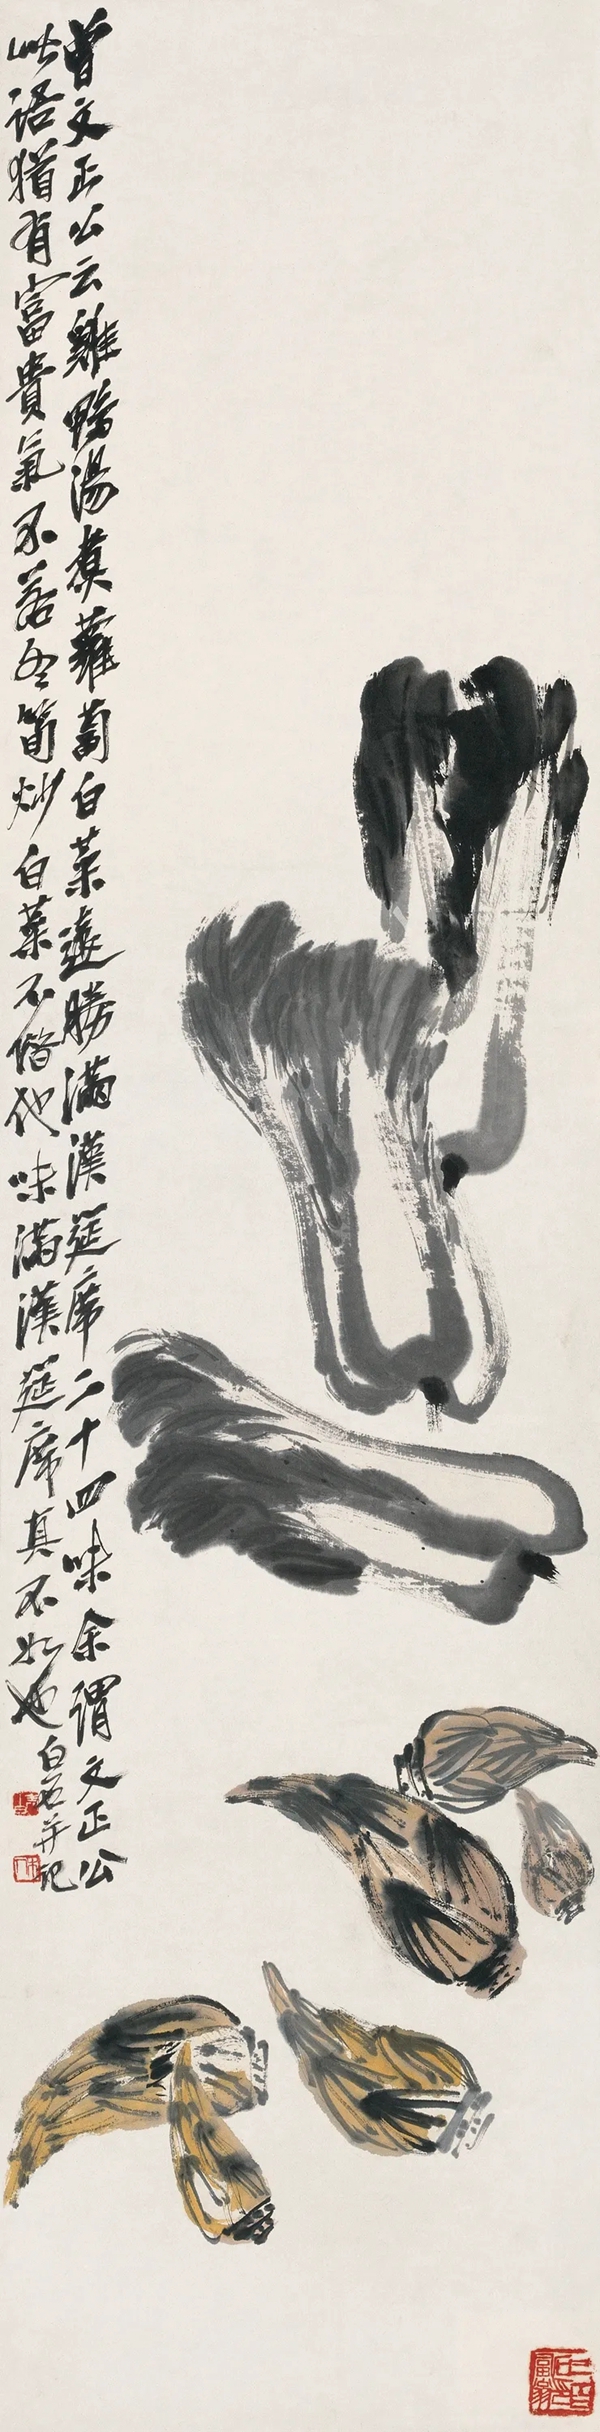 曾文正公云雞鴨湯煑蘿蔔白菜遠勝滿漢筵席二十四味余謂文正公
此語猶有富貴氣不若冬筍炒白菜不借他味滿漢筵席真不如也
白石并記